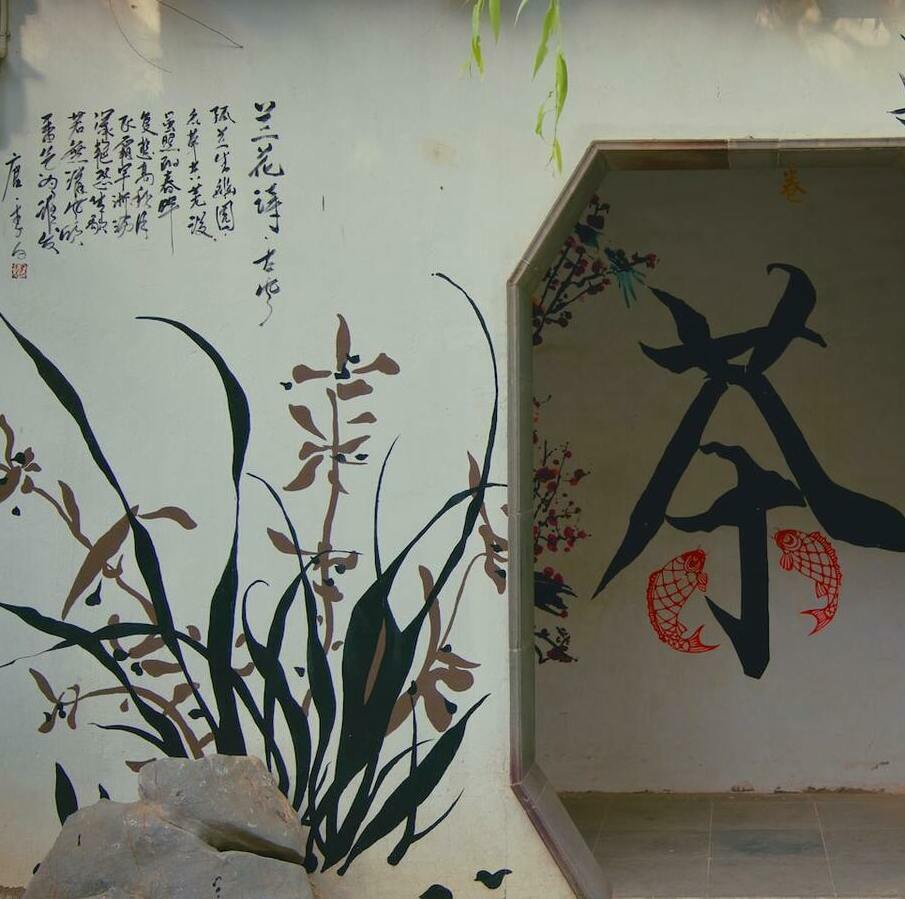 兰花诗·古风
孤兰生幽園,
众草共芜没,
虽照阳春晖
复悲高秋月,
飞霜早淅沥
绿艳恐休歇
若无清风吹,
香气为谁发
唐·李白
茶